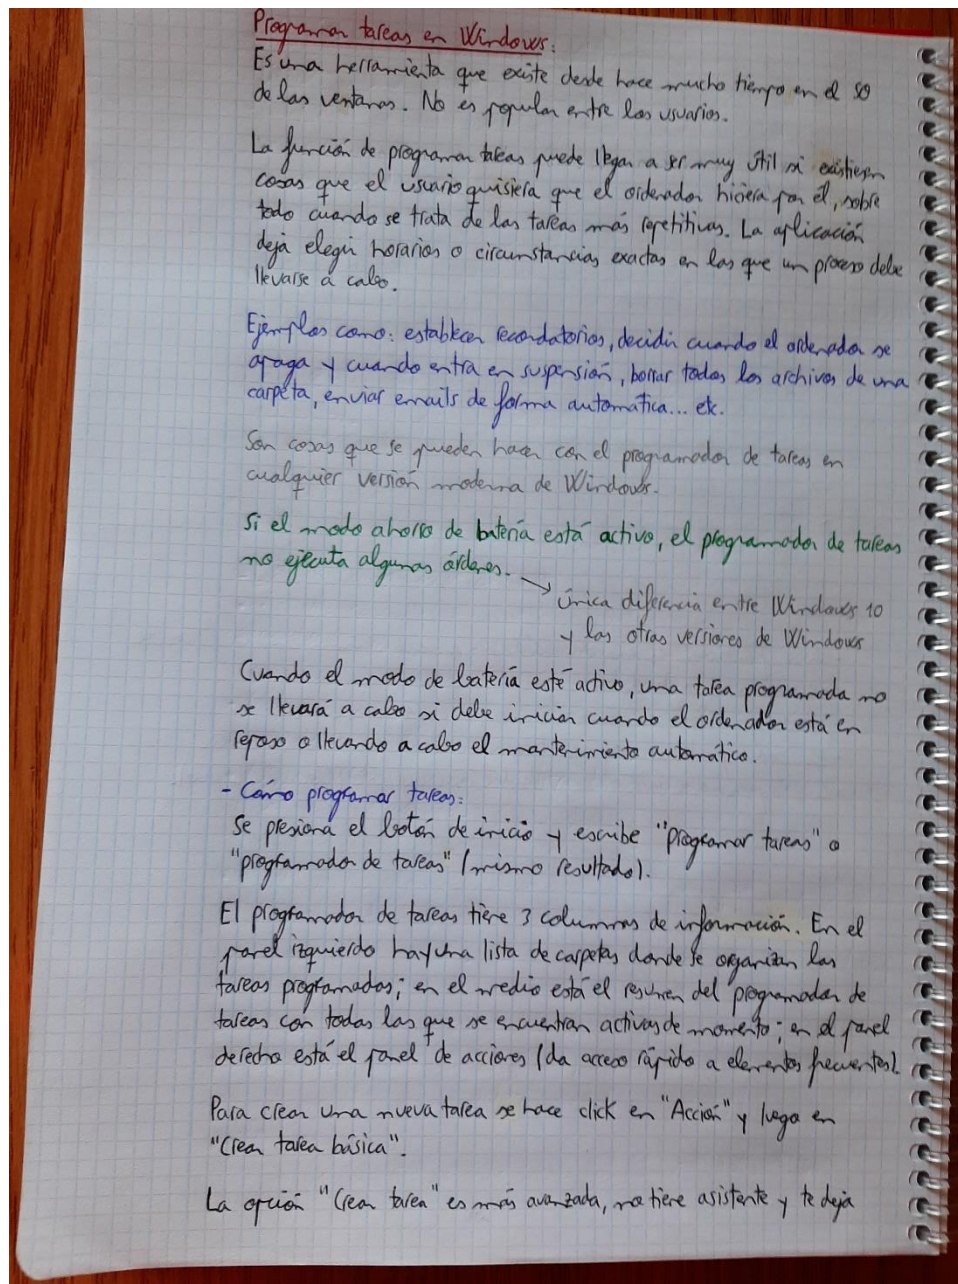 Programar tareas en Windows:
Es una herramienta que existe desde hace mucho tiempo en el SO
de las ventanas. No es popular entre los usuarios.
La función de programar tareas puede llegar a ser muy útil si existiesen
cosas que el usuario quisiera que el ordenador hiciera por él, sobre
todo cuando se trata de las tareas más repetitivas. La aplicación
deja elegir horarios o circunstancias exactas en las que un proceso debe
llevarse a cabo.
Ejemplos como: establecer recordatorios, decidir cuando el ordenador se
apaga y cuando entra en suspensión, borrar todos los archivos de una
carpeta, enviar emails de forma automática... etc.
Son cosas que se pueden hacer con el programador de tareas en
cualquier versión moderna de Windows.
Si el modo ahorro de batería está activo, el programador de tareas
no ejecuta algunas órdenes. →
única diferencia entre Windows 10
y las otras versiones de Windows
Cuando el modo de batería esté activo, una tarea programada no
se llevará a cabo si debe iniciar cuando el ordenador está en
reposo o llevando a cabo el mantenimiento automático.
- Cómo programar tareas:
Se presiona el botón de inicio y escribe "programar tareas" o
"programador de tareas" (mismo resultado).
El programador de tareas tiene 3 columnas de información. En el
panel izquierdo hay una lista de carpetas donde se organizan las
tareas programadas; en el medio está el resumen del programador de
tareas con todas las que se encuentran activas de momento; en el panel
derecho está el panel de acciones (da acceso rápido a elementos frecuentes).
Para crear una nueva tarea se hace click en "Acción" y luego en
"Crear tarea básica".
La opción "Crear tarea" es más avanzada, no tiene asistente y te deja